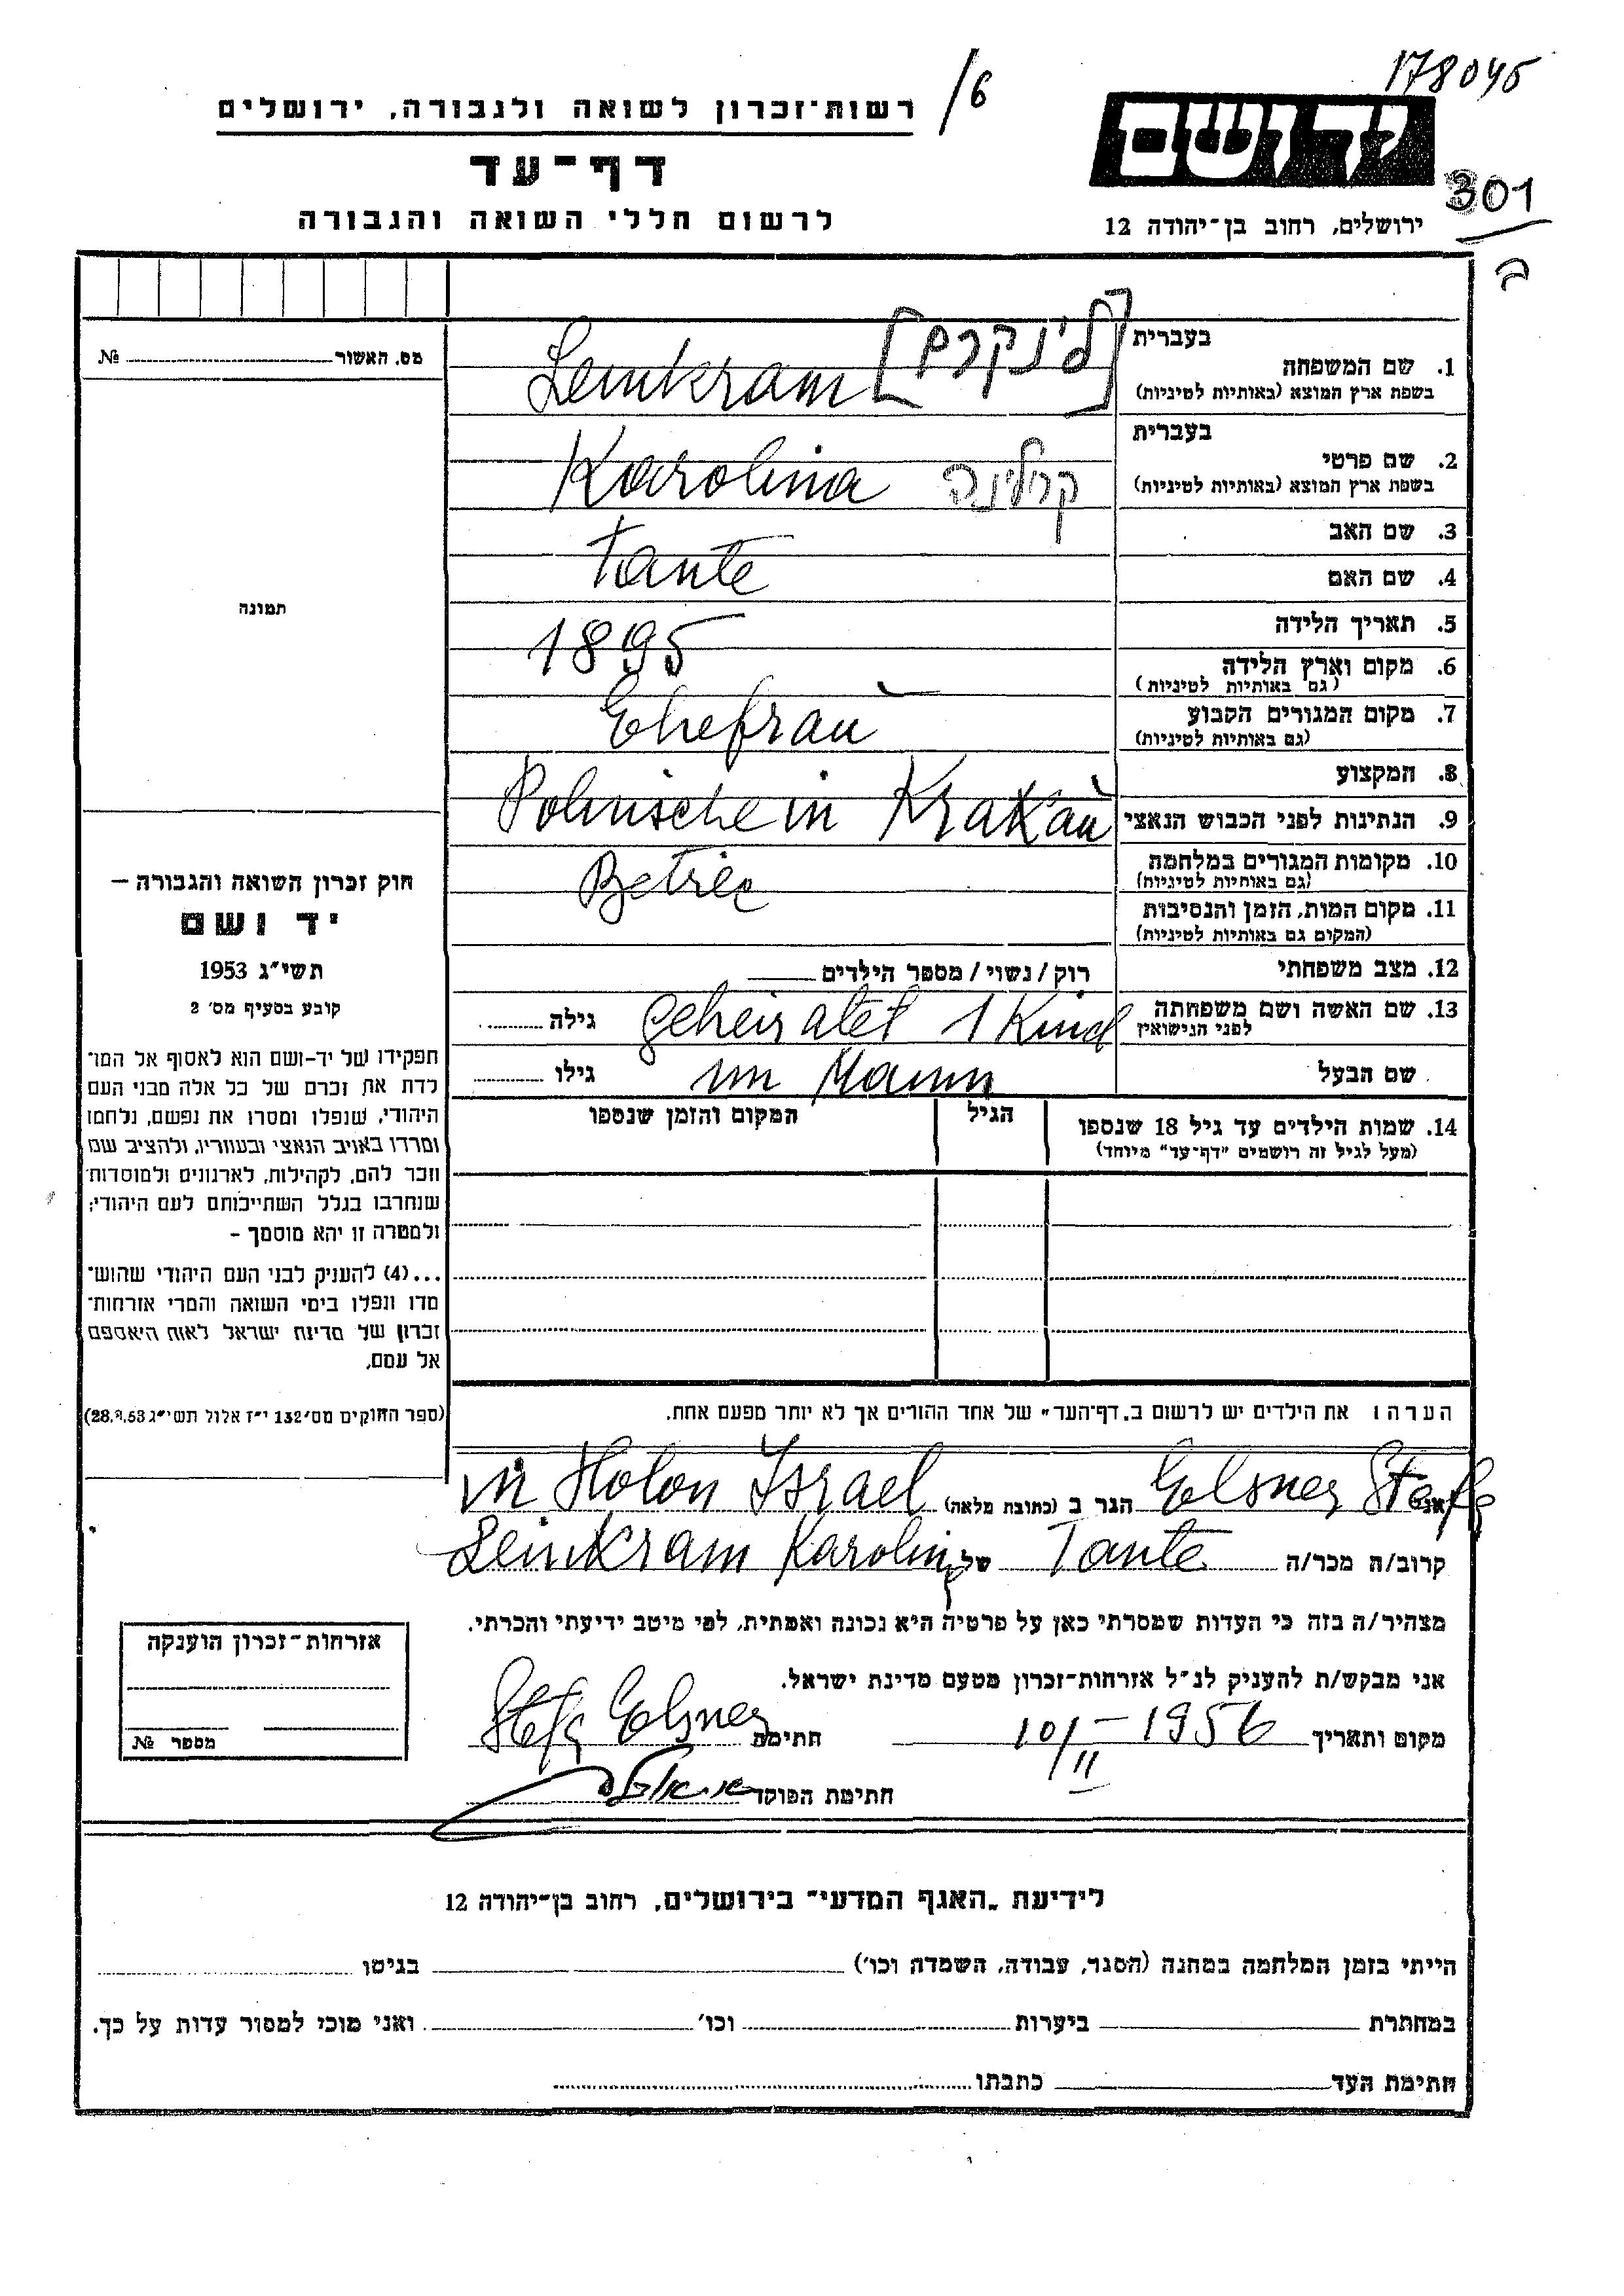 178045
/6
רשות־זכרון לשואה ולגבורה, ירושלים
דף־עד
לרשום חללי השואה והגבורה
ידושם
301
ירושלים, רחוב בן־יהודה 12
ב
מס. האשור № 
תמונה
חוק זכרון השואה והגבורה –
יד ושם
תשי״ג 1953
קובע בסעיף מס׳ 2
תפקידו של יד-ושם הוא לאסוף אל המו־
לדת את זכרם של כל אלה מבני העם
היהודי, שנפלו ומסרו את נפשם, נלחמו
ומרדו באויב הנאצי ובעוזריו, ולהציב שם
וזכר להם, לקהילות, לארגונים ולמוסדות
שנחרבו בגלל השתייכותם לעם היהודי;
ולמטרה זו יהא מוסמך –
...(4) להעניק לבני העם היהודי שהוש־
מדו ונפלו בימי השואה והמרי אזרחות־
זכרון של מדינת ישראל לאות היאספם
אל עמם.
(ספר החוקים מס׳ 132 י״ז אלול תשי״ג 28.9.53)
בעברית [לינקרם]
1. שם המשפחה Leinkram
בשפת ארץ המוצא (באותיות לטיניות)
בעברית
2. שם פרטי קרולינה Karolina
בשפת ארץ המוצא (באותיות לטיניות)
3. שם האב
4. שם האם Tante
5. תאריך הלידה
6. מקום וארץ הלידה 1895
(גם באותיות לטיניות)
7. מקום המגורים הקבוע Ehefrau
(גם באותיות לטיניות)
8. המקצוע
9. הנתינות לפני הכבוש הנאצי Polnische in Krakau
10. מקומות המגורים במלחמה
(גם באותיות לטיניות)
11. מקום המות, הזמן והנסיבות
(המקום גם באותיות לטיניות)
12. מצב משפחתי רוק / נשוי / מספר הילדים
13. שם האשה ושם משפחתה geheiratet 1 Kind גילה
לפני הנישואין
שם הבעל un Mann גילו
14. שמות הילדים עד גיל 18 שנספו הגיל המקום והזמן שנספו
(מעל לגיל זה רושמים "דף־עד" מיוחד)
הערה: את הילדים יש לרשום ב„דף־העד״ של אחד ההורים אך לא יותר מפעם אחת.
אני Elsner Stefa הגר ב (כתובת מלאה) in Holon Israel
קרוב/ה מכר/ה Tante של Leinkram Karolina
מצהיר/ה בזה כי העדות שמסרתי כאן על פרטיה היא נכונה ואמתית, לפי מיטב ידיעתי והכרתי.
אני מבקש/ת להעניק לנ״ל אזרחות־זכרון מטעם מדינת ישראל.
מקום ותאריך 10/II – 1956 חתימה Stefa Elsner
חתימת הפוקד
אזרחות־זכרון הוענקה
מספר №
לידיעת „האגף המדעי״ בירושלים, רחוב בן־יהודה 12
הייתי בזמן המלחמה במחנה (הסגר, עבודה, השמדה וכו׳) בגיטו
במחתרת ביערות וכו׳ ואני מוכן למסור עדות על כך.
חתימת העד כתבתו